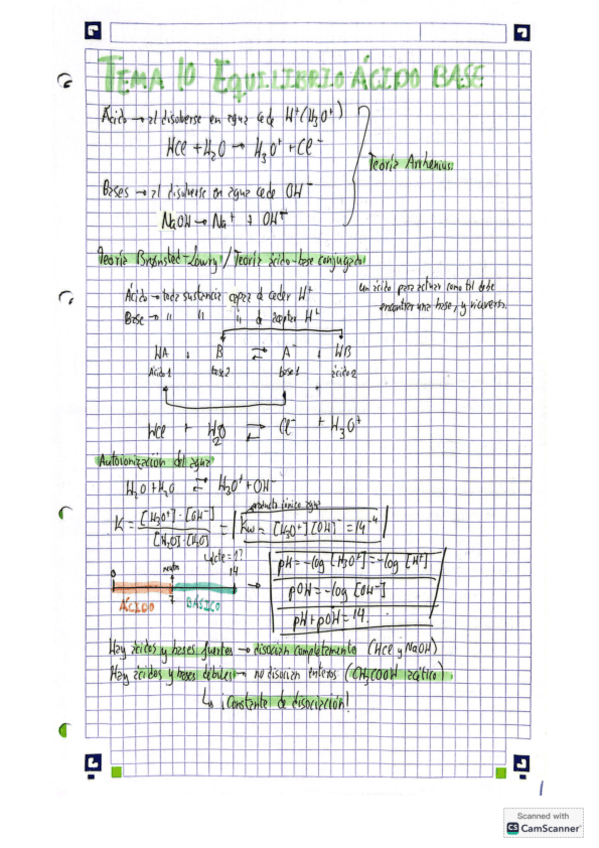 TEMA 10 EQUILIBRIO ÁCIDO BASE
Ácido → al disolverse en agua cede H⁺ (H₃O⁺)
HCl + H₂O → H₃O⁺ + Cl⁻
Teoría Arrhenius
Bases → al disolverse en agua cede OH⁻
NaOH → Na⁺ + OH⁻
Teoría Brønsted-Lowry / Teoría ácido-base conjugado
Ácido → toda sustancia capaz de ceder H⁺
Base → " " " de aceptar H⁺
un ácido para actuar como tal debe
encontrar una base, y viceversa.
HA + B ⇄ A⁻ + HB
Ácido 1 base 2 base 1 ácido 2
HCl + H₂O ⇄ Cl⁻ + H₃O⁺
Autoionización del agua
H₂O + H₂O ⇄ H₃O⁺ + OH⁻
producto iónico agua
K = [H₃O⁺]·[OH⁻] / [H₂O]·[H₂O] = Kw = [H₃O⁺][OH]⁻ = 14⁻⁴
neutro
0 7 14
ÁCIDO BÁSICO
pH = -log [H₃O⁺] = -log [H⁺]
pOH = -log [OH⁻]
pH + pOH = 14.
Hay ácidos y bases fuertes → disocian completamente (HCl y NaOH)
Hay ácidos y bases débiles → no disocian enteros (CH₃COOH acético)
↳ ¡Constante de disociación!
1
Scanned with
CS CamScanner